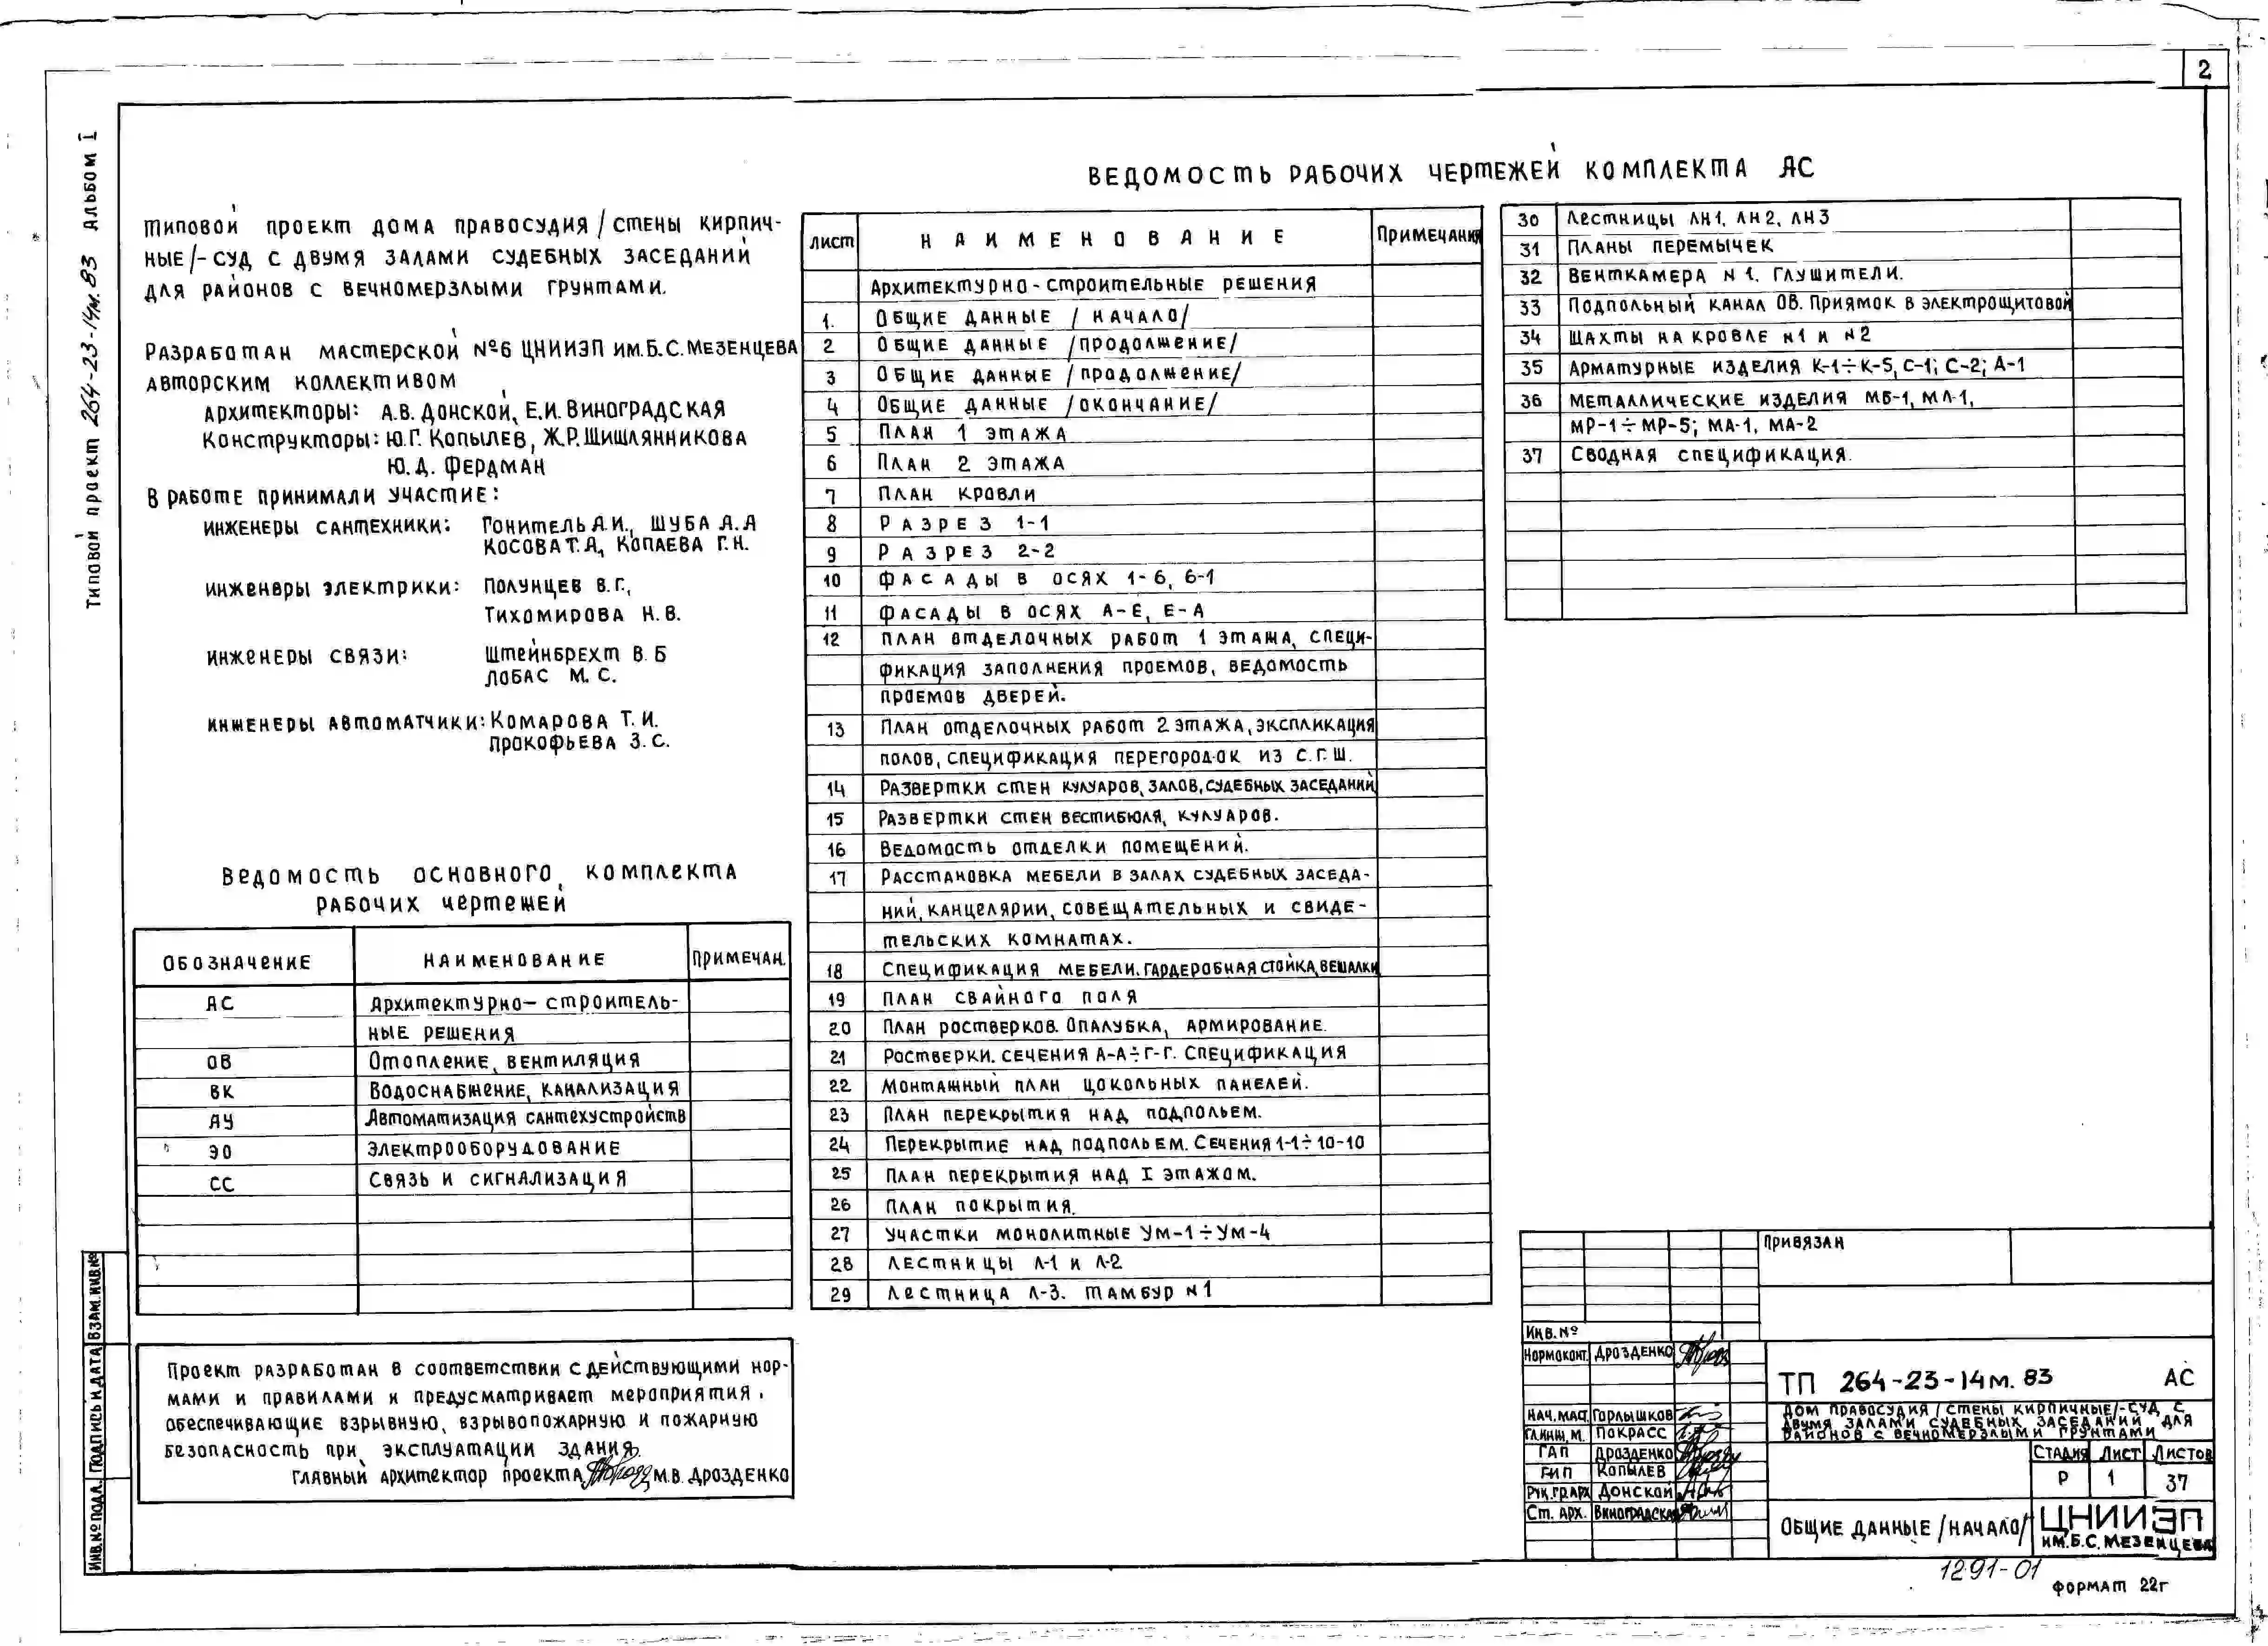 2
Типовой проект 264-23-14м.83 Альбом I
Типовой проект дома правосудия /стены кирпич-
ные/- суд с двумя залами судебных заседаний
для районов с вечномерзлыми грунтами.
Разработан мастерской №6 ЦНИИЭП им.Б.С.Мезенцева
авторским коллективом
Архитекторы: А.В.Донской, Е.И.Виноградская
Конструкторы: Ю.Г.Копылев, Ж.Р.Шишлянникова
Ю.Д.Фердман
В работе принимали участие:
инженеры сантехники: Гонитель А.И., Шуба А.А
Косова Т.А, Копаева Г.Н.
инженеры электрики: Полунцев В.Г.,
Тихомирова Н.В.
инженеры связи: Штейнбрехт В.Б
Лобас М.С.
инженеры автоматчики: Комарова Т.И.
Прокофьева З.С.
Ведомость основного комплекта
рабочих чертежей
Обозначение Наименование Примечан.
АС Архитектурно- строитель-
ные решения
ОВ Отопление, вентиляция
ВК Водоснабжение, канализация
АУ Автоматизация сантехустройств
ЭО Электрооборудование
СС Связь и сигнализация
Проект разработан в соответствии с действующими нор-
мами и правилами и предусматривает мероприятия,
обеспечивающие взрывную, взрывопожарную и пожарную
безопасность при эксплуатации здания.
Главный архитектор проекта М.В.Дрозденко
Ведомость рабочих чертежей комплекта АС
Лист Наименование Примечания
Архитектурно-строительные решения
1. Общие данные /начало/
2 Общие данные /продолжение/
3 Общие данные /продолжение/
4 Общие данные /окончание/
5 План 1 этажа
6 План 2 этажа
7 План кровли
8 Разрез 1-1
9 Разрез 2-2
10 Фасады в осях 1-6, 6-1
11 Фасады в осях А-Е, Е-А
12 План отделочных работ 1 этажа, специ-
фикация заполнения проемов, ведомость
проемов дверей.
13 План отделочных работ 2 этажа, экспликация
полов, спецификация перегородок из С.Г.Ш.
14 Развертки стен кулуаров, залов, судебных заседаний
15 Развертки стен вестибюля, кулуаров.
16 Ведомость отделки помещений.
17 Расстановка мебели в залах судебных заседа-
ний, канцелярии, совещательных и свиде-
тельских комнатах.
18 Спецификация мебели. Гардеробная стойка, вешалки
19 План свайного поля
20 План ростверков. Опалубка, армирование.
21 Ростверки. Сечения А-А÷Г-Г. Спецификация
22 Монтажный план цокольных панелей.
23 План перекрытия над подпольем.
24 Перекрытие над подпольем. Сечения 1-1÷10-10
25 План перекрытия над I этажом.
26 План покрытия.
27 Участки монолитные Ум-1÷Ум-4
28 Лестницы Л-1 и Л-2
29 Лестница Л-3. Тамбур №1
30 Лестницы ЛН1, ЛН2, ЛН3
31 Планы перемычек
32 Венткамера №1. Глушители.
33 Подпольный канал ОВ. Приямок в электрощитовой
34 Шахты на кровле №1 и №2
35 Арматурные изделия К-1÷К-5, С-1; С-2; А-1
36 Металлические изделия МБ-1, МЛ-1,
МР-1÷МР-5; МА-1, МА-2
37 Сводная спецификация.
Привязан
Инв.№
Нормоконт. Дрозденко
Нач.маст. Горлышков
Гл.инж.м. Покрасс
ГАП Дрозденко
ГИП Копылев
Рук.гр.арх Донской
Ст. арх. Виноградская
ТП 264-23-14м.83 АС
Дом правосудия /стены кирпичные/-суд с
двумя залами судебных заседаний для
районов с вечномерзлыми грунтами
Стадия Лист Листов
Р 1 37
Общие данные /начало/
ЦНИИЭП
им.Б.С.Мезенцева
1291-01
Формат 22г
Инв.№подл. Подпись и дата Взам.инв.№